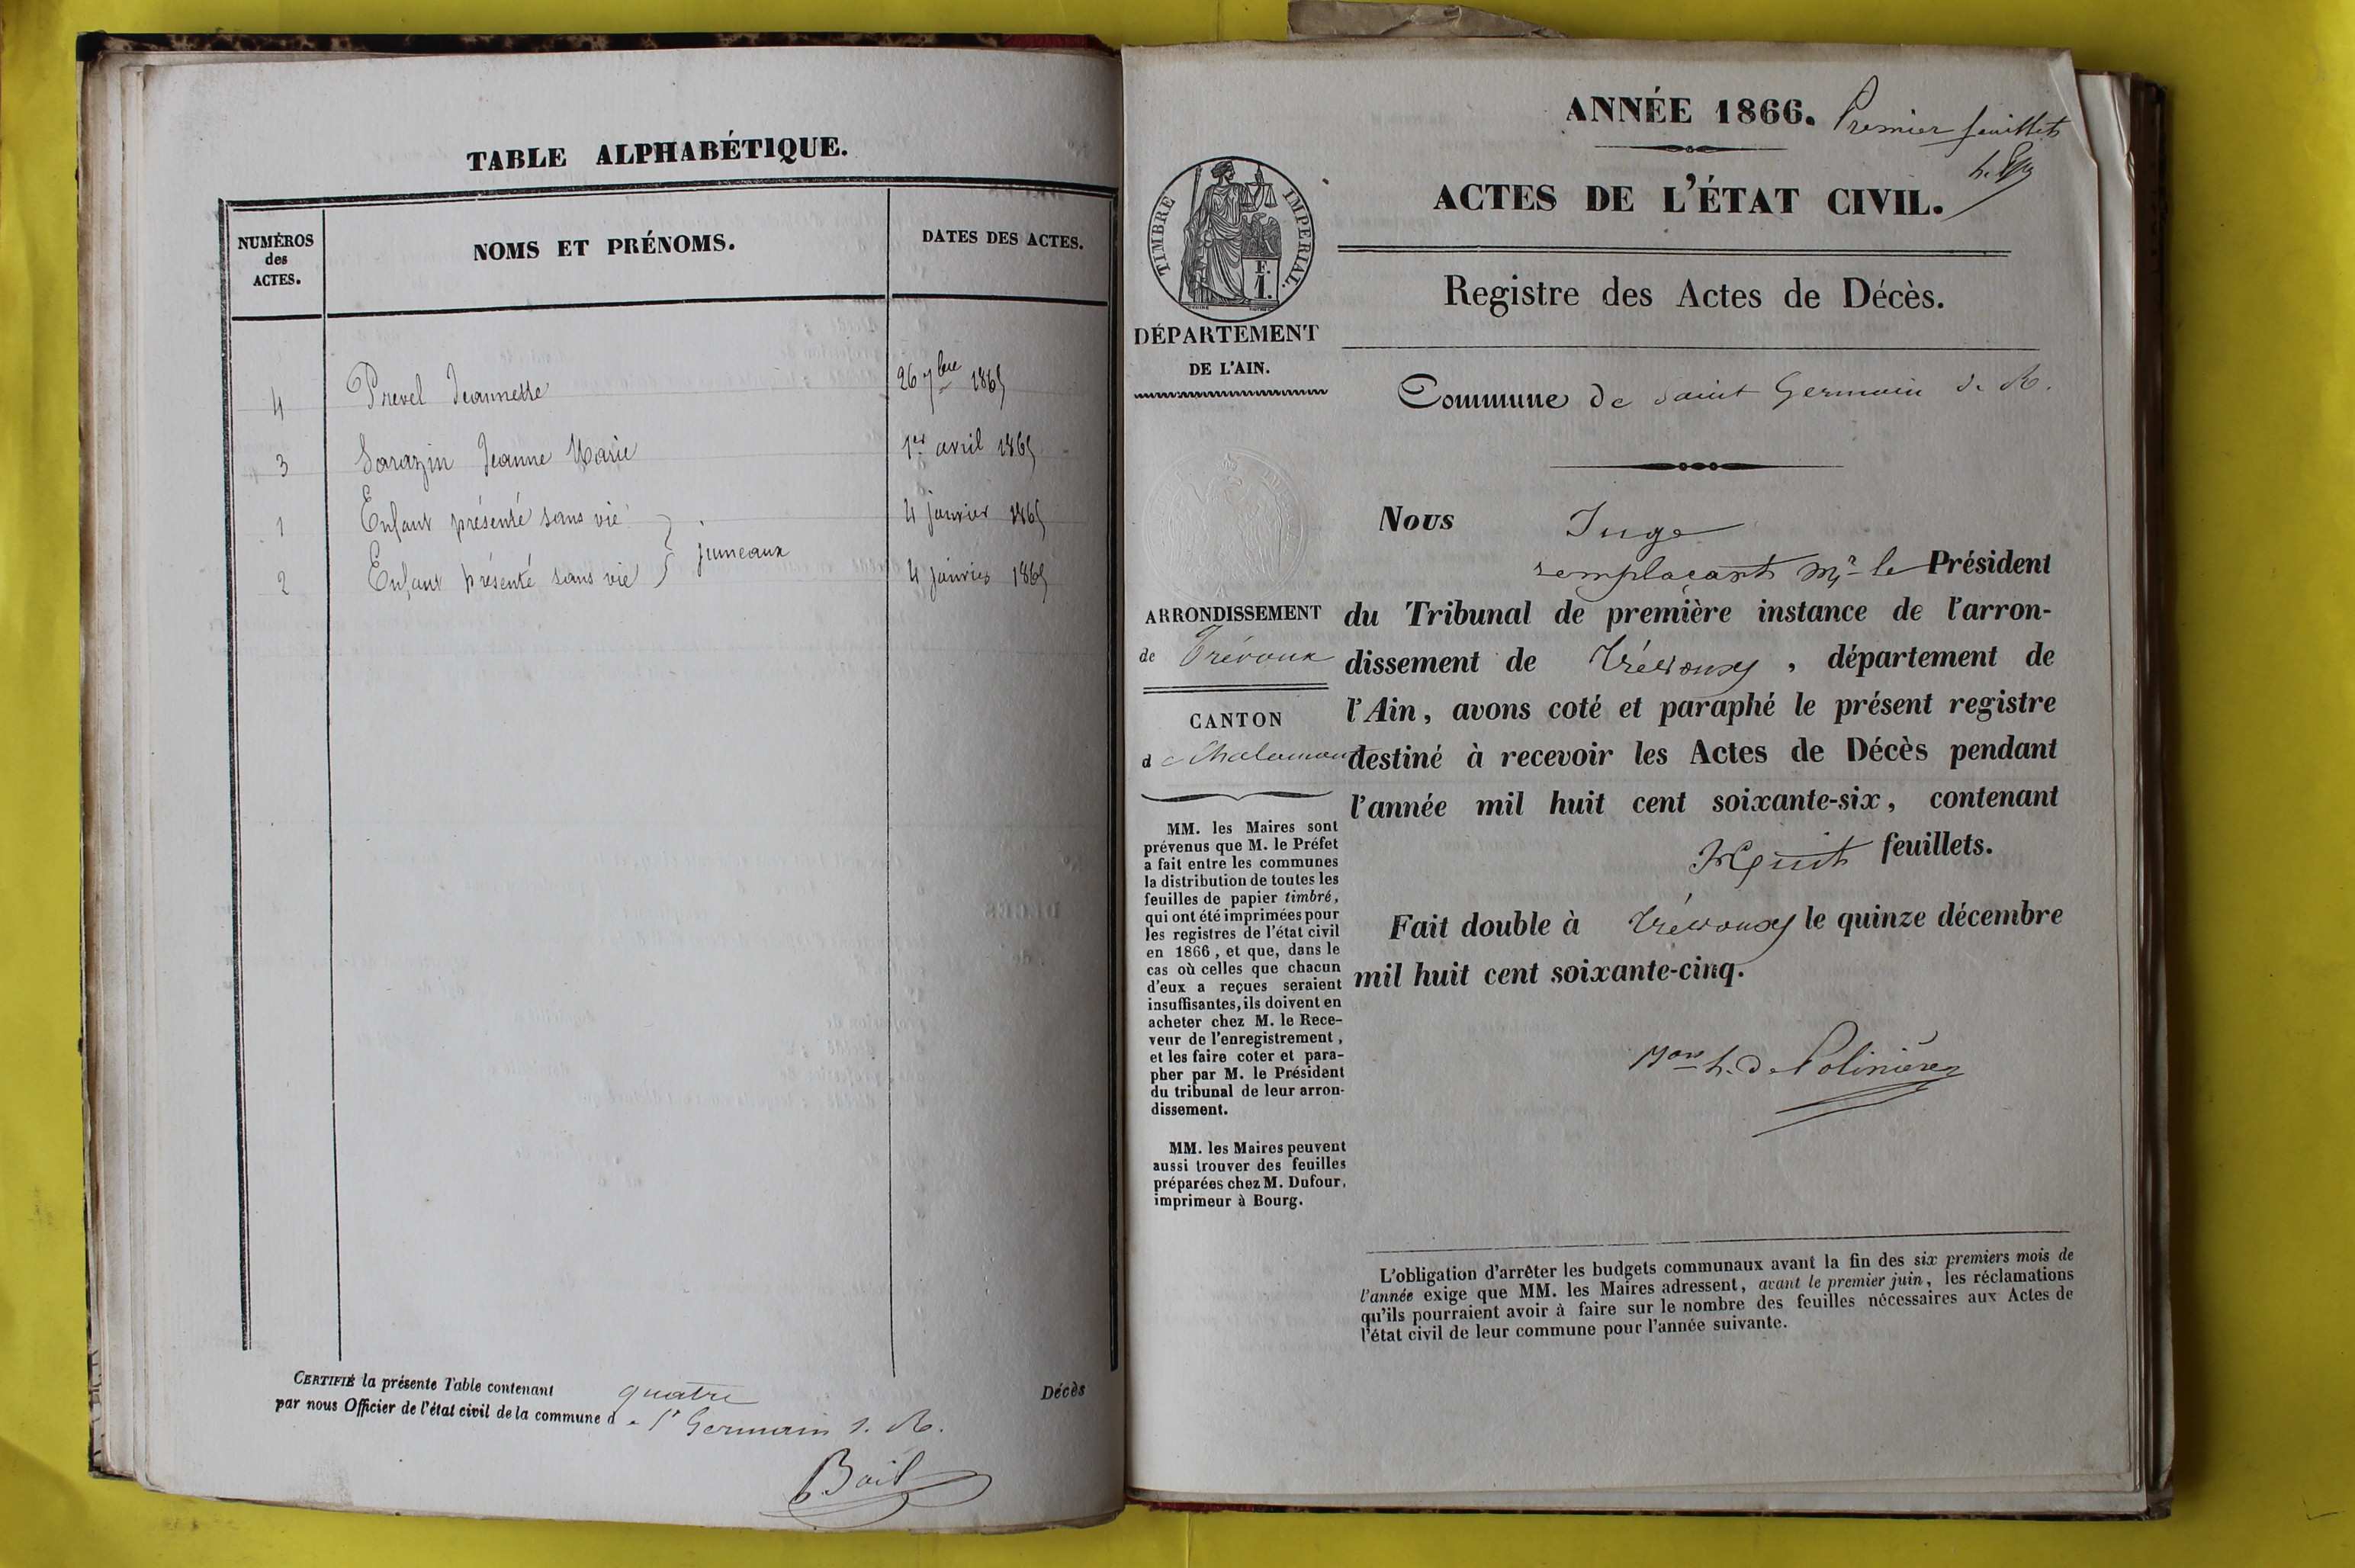 TABLE ALPHABÉTIQUE.
NUMÉROS
des
ACTES.
NOMS ET PRÉNOMS.
DATES DES ACTES.
4 Prevel Jeannette 26 7bre 1865
3 Sarazin Jeanne Marie 1er avril 1865
1 Enfant présenté sans vie 4 janvier 1865
jumeaux
2 Enfant présenté sans vie 4 janvier 1865
CERTIFIÉ la présente Table contenant quatre Décès
par nous Officier de l'état civil de la commune de St Germain s. R.
Bail
ANNÉE 1866. Premier feuillet
ACTES DE L'ÉTAT CIVIL.
TIMBRE IMPERIAL.
F.
1.
Registre des Actes de Décès.
DÉPARTEMENT
DE L'AIN.
Commune de Saint Germain s. R.
Nous Juge
remplaçant Mr le Président
du Tribunal de première instance de l'arron-
dissement de Trévoux, département de
l'Ain, avons coté et paraphé le présent registre
destiné à recevoir les Actes de Décès pendant
l'année mil huit cent soixante-six, contenant
huit feuillets.
Fait double à Trévoux le quinze décembre
mil huit cent soixante-cinq.
h. de Polinière
ARRONDISSEMENT
de Trévoux
CANTON
de Chalamont
MM. les Maires sont
prévenus que M. le Préfet
a fait entre les communes
la distribution de toutes les
feuilles de papier timbré,
qui ont été imprimées pour
les registres de l'état civil
en 1866, et que, dans le
cas où celles que chacun
d'eux a reçues seraient
insuffisantes, ils doivent en
acheter chez M. le Rece-
veur de l'enregistrement,
et les faire coter et para-
pher par M. le Président
du tribunal de leur arron-
dissement.
MM. les Maires peuvent
aussi trouver des feuilles
préparées chez M. Dufour,
imprimeur à Bourg.
L'obligation d'arrêter les budgets communaux avant la fin des six premiers mois de
l'année exige que MM. les Maires adressent, avant le premier juin, les réclamations
qu'ils pourraient avoir à faire sur le nombre des feuilles nécessaires aux Actes de
l'état civil de leur commune pour l'année suivante.